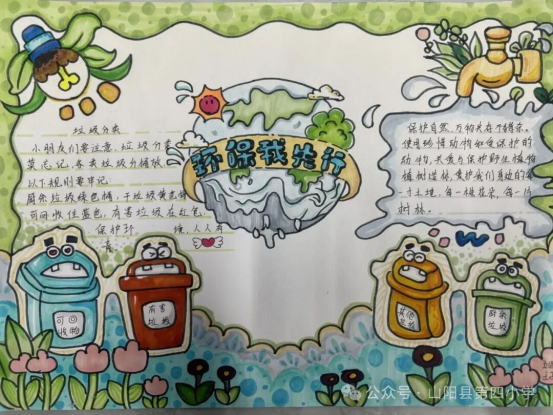 环保我先行
垃圾分类
小朋友们要注意,垃圾分类
莫忘记,各类垃圾分桶放,
以下规则要牢记
厨余垃圾绿色桶,干垃圾黄色
可回收住蓝色,有害垃圾在红色,
保护环 境,人人有
责
保护自然,万物共存不稀奇。
的
动物,
植树造林,爱护我们身边的每
一寸土地,每一株花朵,每一片
树林。
可回
收物
有害
垃圾
其他
垃圾
厨余
垃圾
公众号·山阳县第四小学